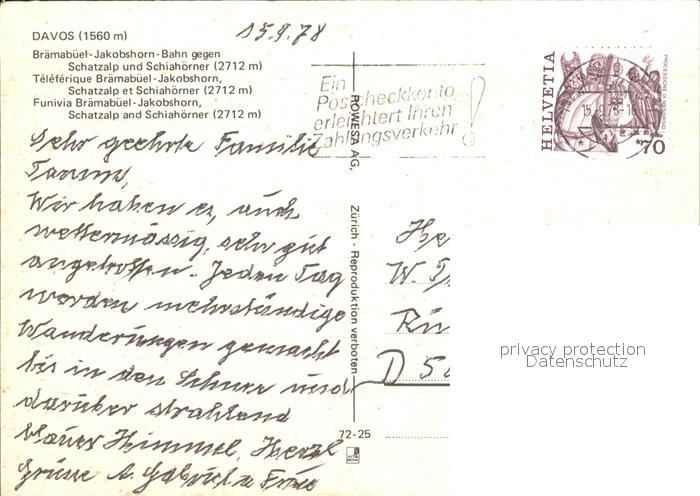 15.9.78
DAVOS (1560 m)
Brämabüel-Jakobshorn-Bahn gegen
Schatzalp und Schiahörner (2712 m)
Téléférique Brämabuel-Jakobshorn,
Schatzalp et Schiahörner (2712 m)
Funivia Brämabuel-Jakobshorn,
Schatzalp and Schiahörner (2712 m)
Sehr geehrte Familie
Wir haben es, auch
wettermässig, sehr gut
angetroffen. Jeden Tag
werden mehrständige
Wanderungen gemacht
bis in den Schnee und
darüber strahlend
blauer Himmel. Herzl
Grüsse
ROWESA AG, Zürich - Reproduktion verboten
72-25
Ein
Postcheckkonto
erleichtert Ihren
Zahlungsverkehr!
HELVETIA
70
He
W.
D 50
privacy protection
Datenschutz